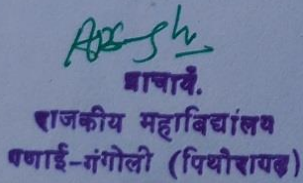 प्राचार्य.
राजकीय महाविद्यालय
गणाई-गंगोली (पिथौरागढ़)